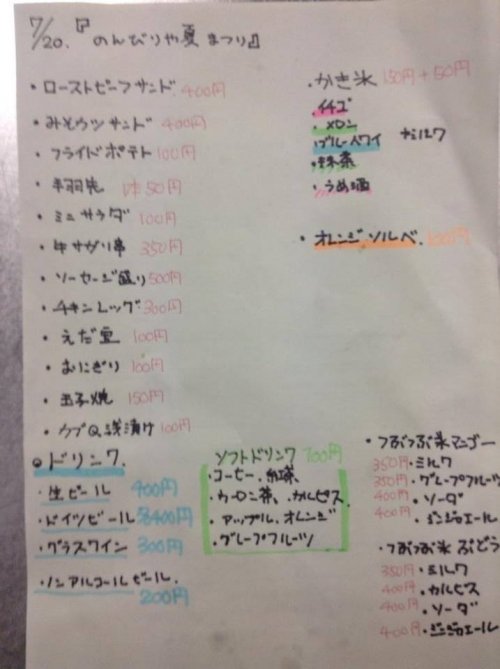 7/20.『のんびりや夏まつり』
・ローストビーフサンド 400円
・みそカツサンド 400円
・フライドポテト 100円
・手羽先 1本50円
・ミニサラダ 100円
・牛サガリ串 350円
・ソーセージ盛り 500円
・チキンレッグ 300円
・えだ豆 100円
・おにぎり 100円
・玉子焼 150円
・カブQ浅漬け 100円
・かき氷 150円+50円
・イチゴ
・メロン
・ブルーハワイ +ミルク
・抹茶
・うめ酒
・オレンジソルベ. 100円
●ドリンク.
・生ビール 400円
・ドイツビール 400円
・グラスワイン 300円
・ノンアルコールビール.
200円
ソフトドリンク 100円
・コーヒー.紅茶.
・ウーロン茶.カルピス.
・アップル.オレンジ
・グレープフルーツ
・つぶつぶ氷マンゴー
350円・ミルク
350円・グレープフルーツ
400円・ソーダ
400円・ジンジャエール
・つぶつぶ氷ぶどう
350円・ミルク
400円・カルピス
400円・ソーダ
400円・ジンジャエール